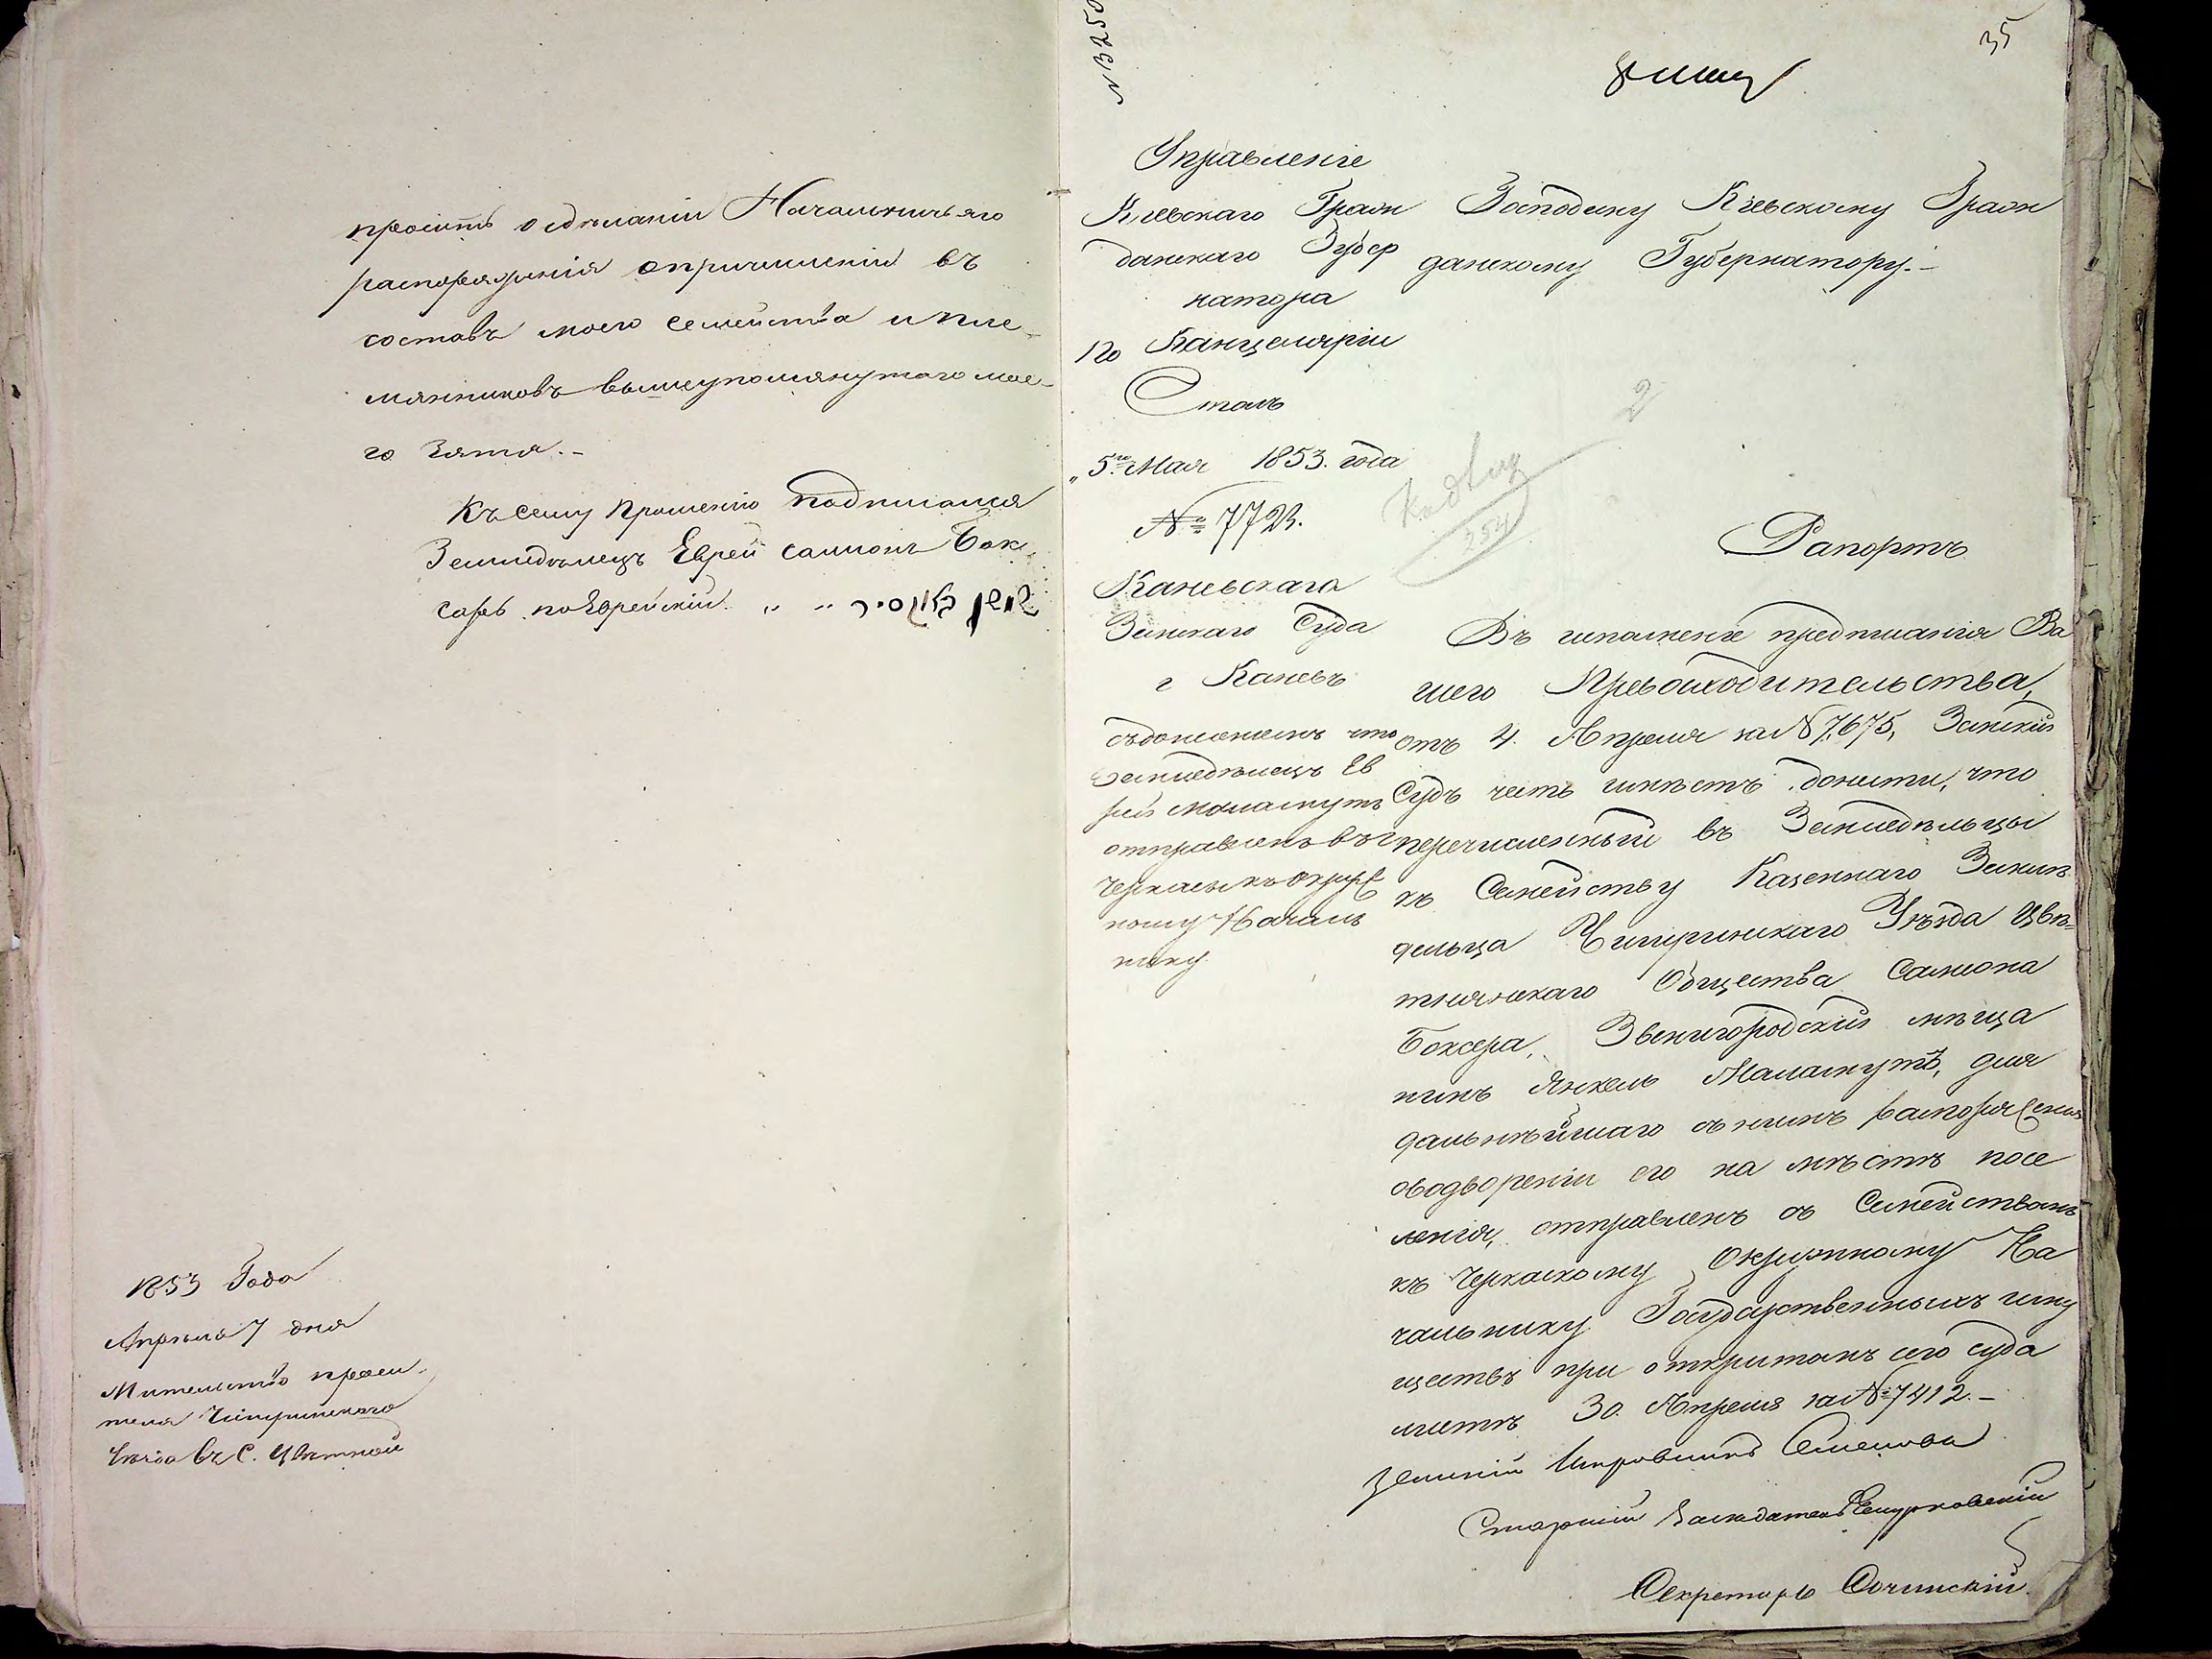 просить о сдѣланіи Начальничьяго
распоряженія опричисленіи въ
составъ моего семейства ипле-
мянниковъ вышеупомянутаго мое-
го Зятя.-
Къ сему Прошенію подписался
Земледѣлецъ Еврей Самсонъ Бок
серъ по Еврейскій
1853 Года
Апрѣля 7 дня
Мительство проси-
теля Чигиринскаго
Уѣзда въ С. Цвѣтной
N 3250
35
Управленіе
Кіевскаго Граж
данскаго Губер
натора
По Канцеляріи
Столъ
"5.го Мая 1853. года
№ 7723.
Каневскаго
Земскаго Суда
г Каневъ
съдонесеніемъ что
Земледѣлецъ Ев
рей Маламутъ
отправленъ въ г
Черкасы къ Окруж
ному Началь
нику
Господину Кіевскому Граж
данскому Губернатору.-
2
254
Рапортъ
Въ исполненіе предписанія Ва
шего Превосходительства,
отъ 4. Апреля за N 7,675, Земскій
Судъ честь имѣетъ донести, что
перечисленный въ Земледѣльцы
къ Семейству Казеннаго Землѣ
дельца Чигиринскаго Уѣзда Цвѣ=
тнянскаго Общества Самсона
Боксера, Звенигородскій мѣща
нинъ Янкель Маламутъ, для
дальнѣйшаго съ нимъ распоряженія
оводвореніи его на мѣстѣ посе
ленія, отправленъ съ Семействомъ
къ Черкаскому Окружному На
чальнику Государственныхъ иму
ществъ при открытомъ сего суда
листѣ 30. Апреля за № 7412.-
Земскій Исправникъ Семеновъ
Старшій Засѣдатель
Секретарь Сочинскій